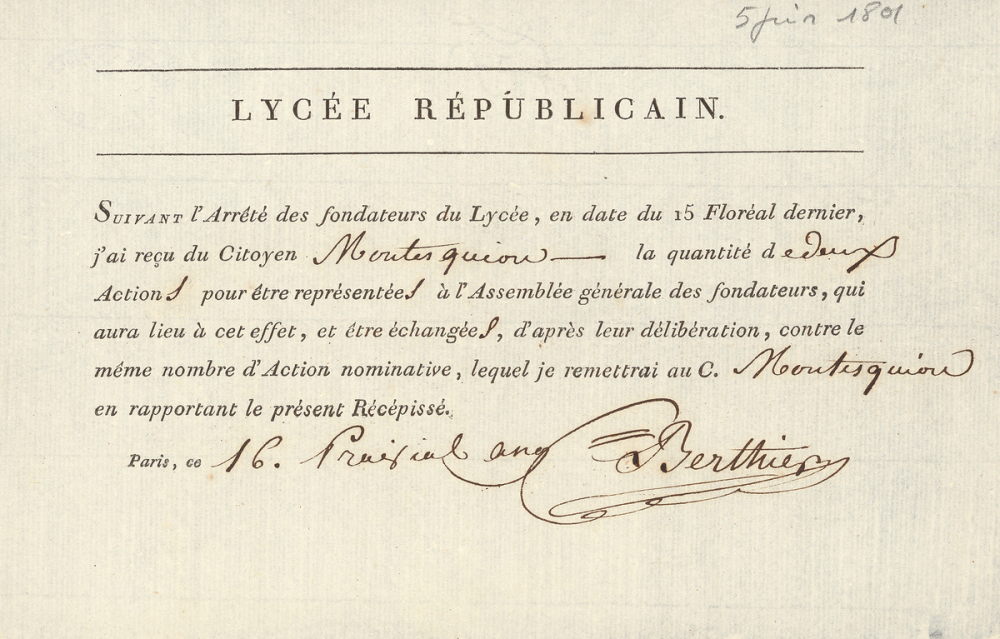 5 juin 1801
LYCÉE RÉPUBLICAIN.
SUIVANT l'Arrêté des fondateurs du Lycée, en date du 15 Floréal dernier,
j'ai reçu du Citoyen Montesquiou — la quantité de deux
Actions pour être représentées à l'Assemblée générale des fondateurs, qui
aura lieu à cet effet, et être échangées, d'après leur délibération, contre le
même nombre d'Action nominative, lequel je remettrai au C. Montesquiou
en rapportant le présent Récépissé.
Paris, ce 16. Prairial an 9 Berthier